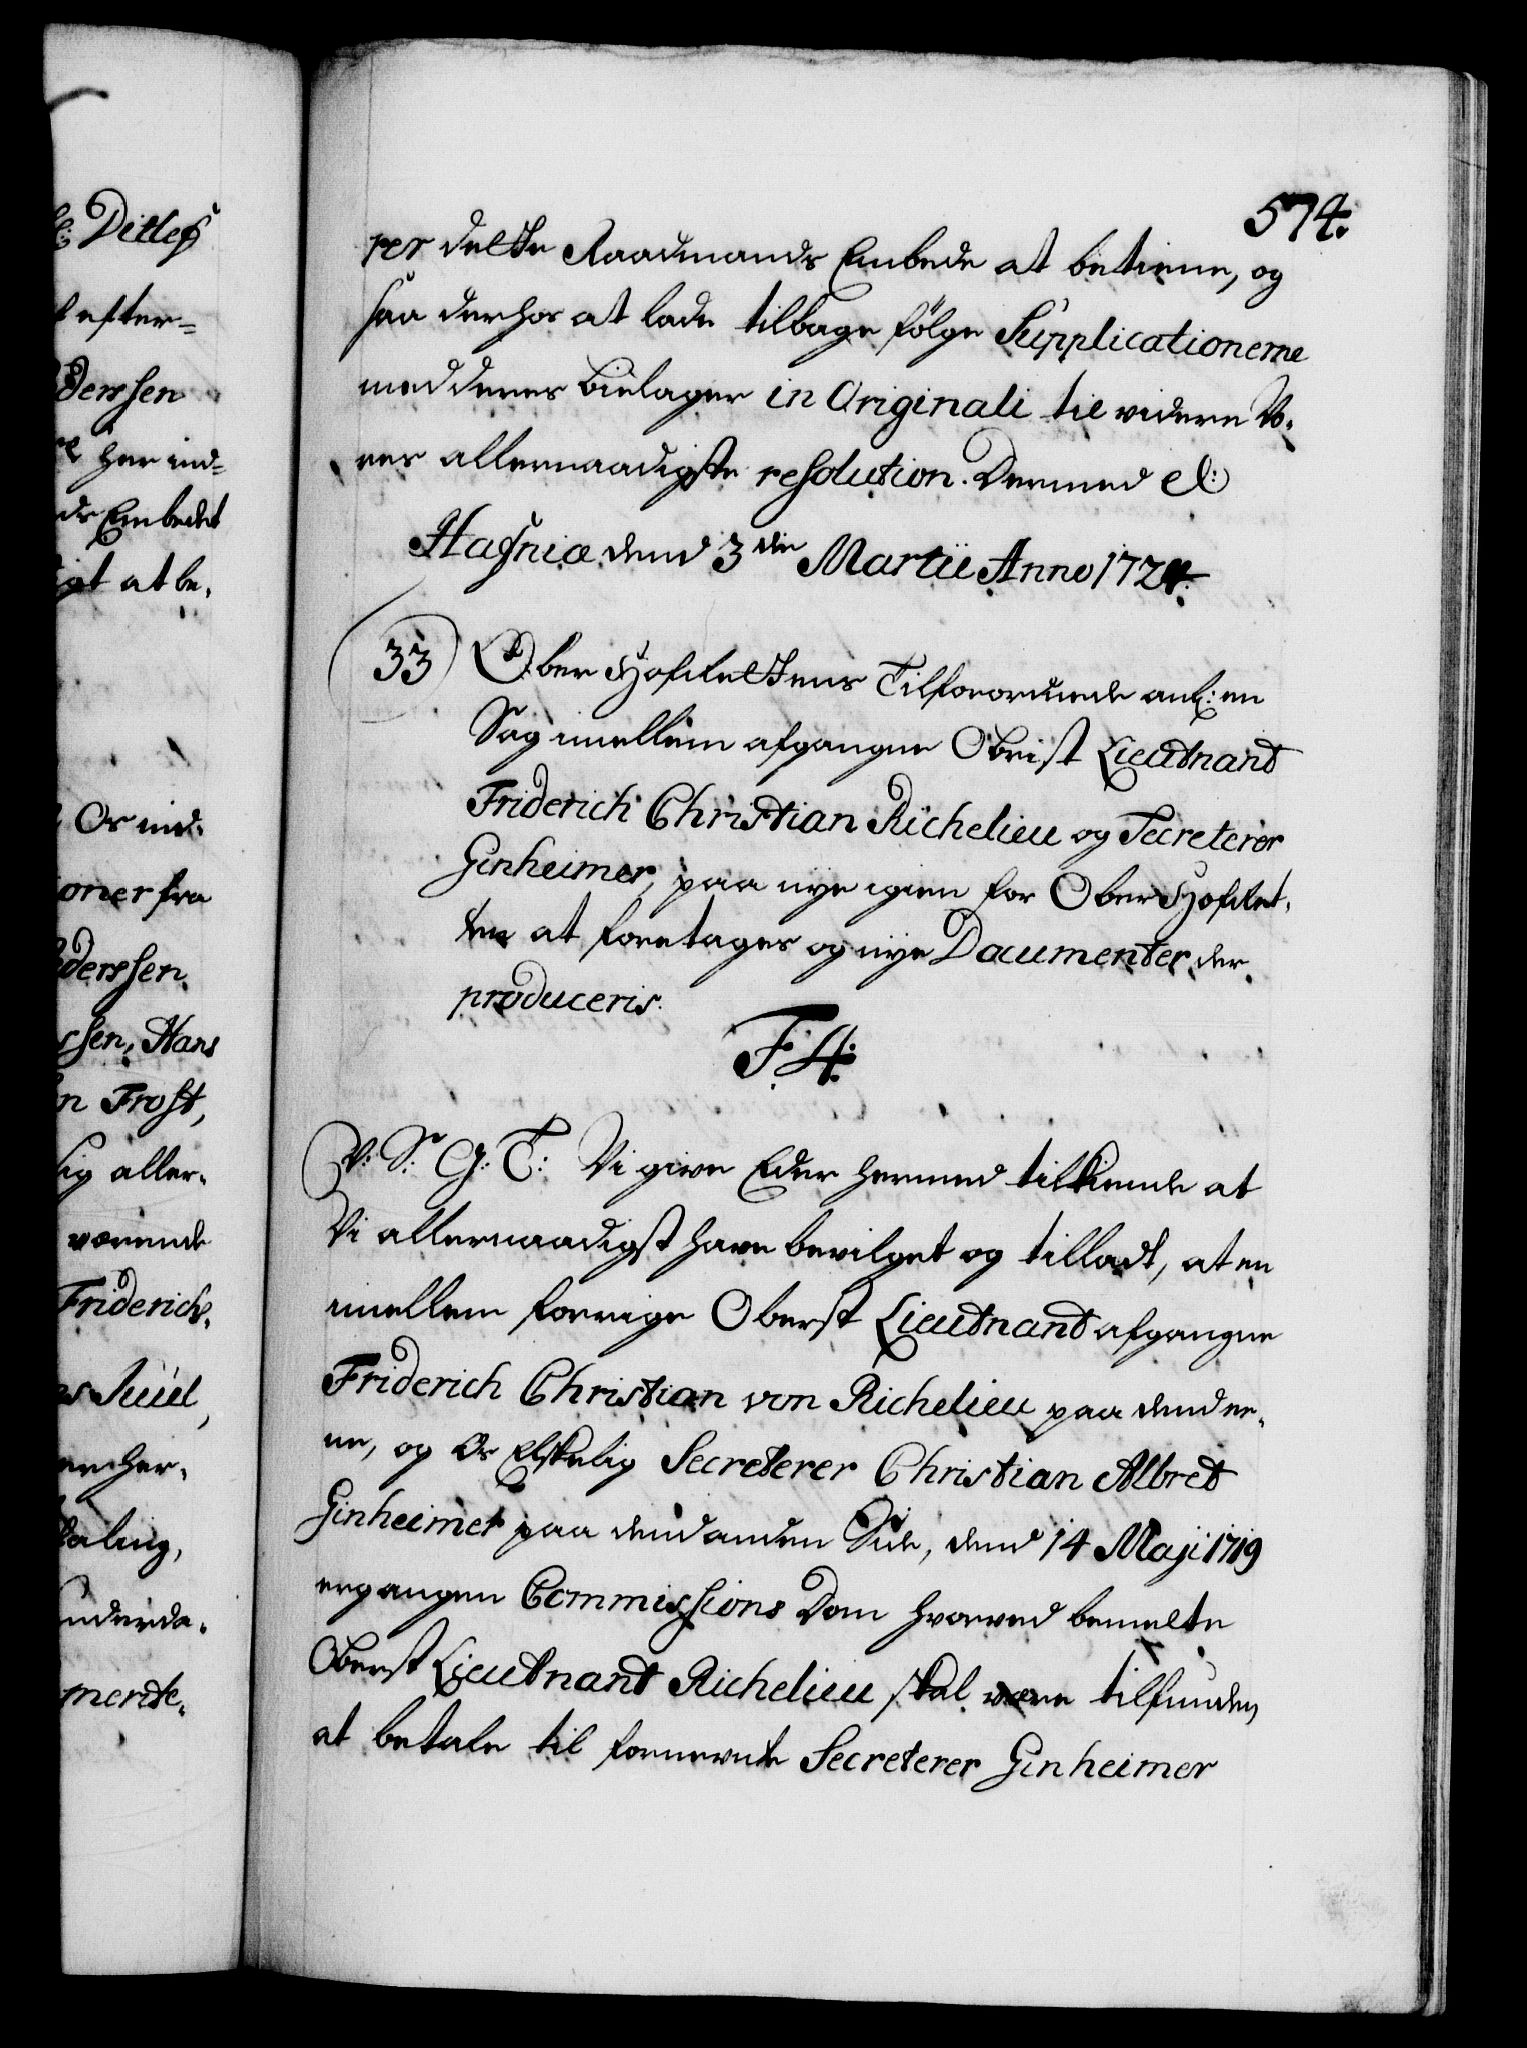 574.
per dette Raadmands Embede at betiene, og
saa derhos at lade tilbage følge Supplicationerne
med deres bielager in Originali til videre Vo,
res allernaadigste resolution. Dermed &c:
Hafniæ dend 3die Martii Anno 1724.
33 Ober Hofrettens Tilforordnede anl: en
Sag imellem afgangne Obrist Lieutnant
Friderich Christian Richelieu og Secreterer
Ginheimer, paa nye igien for Ober Hofret,
ten at foretages og nye Documenter der
produceris.
F 4.
V: S: G: T: Vi give Eder hermed tilkiende at
Vi allernaadigst have bevilget og tilladt, at en
imellem forrige Oberst Lieutnant afgangne
Friderich Christian von Richelieu paa dend ee,
ne, og Os Elskelig Secreterer Christian Albret
Ginheimer paa dend anden Side, dend 14 Maji 1719
ergangen Commissions Dom hvorved bemelte
Oberst Lieutnant Richelieu skal være tilfunden
at betale til fornevnte Secreterer Ginheimer
Ditlef
efter=
derssen
her ind=
ds Embedet
igt at be,
Os ind,
oner fra
derssen
ssen, Hans
n Frost,
sig aller,
værende
Friderich,
s Juul,
en her,
taling,
merite,